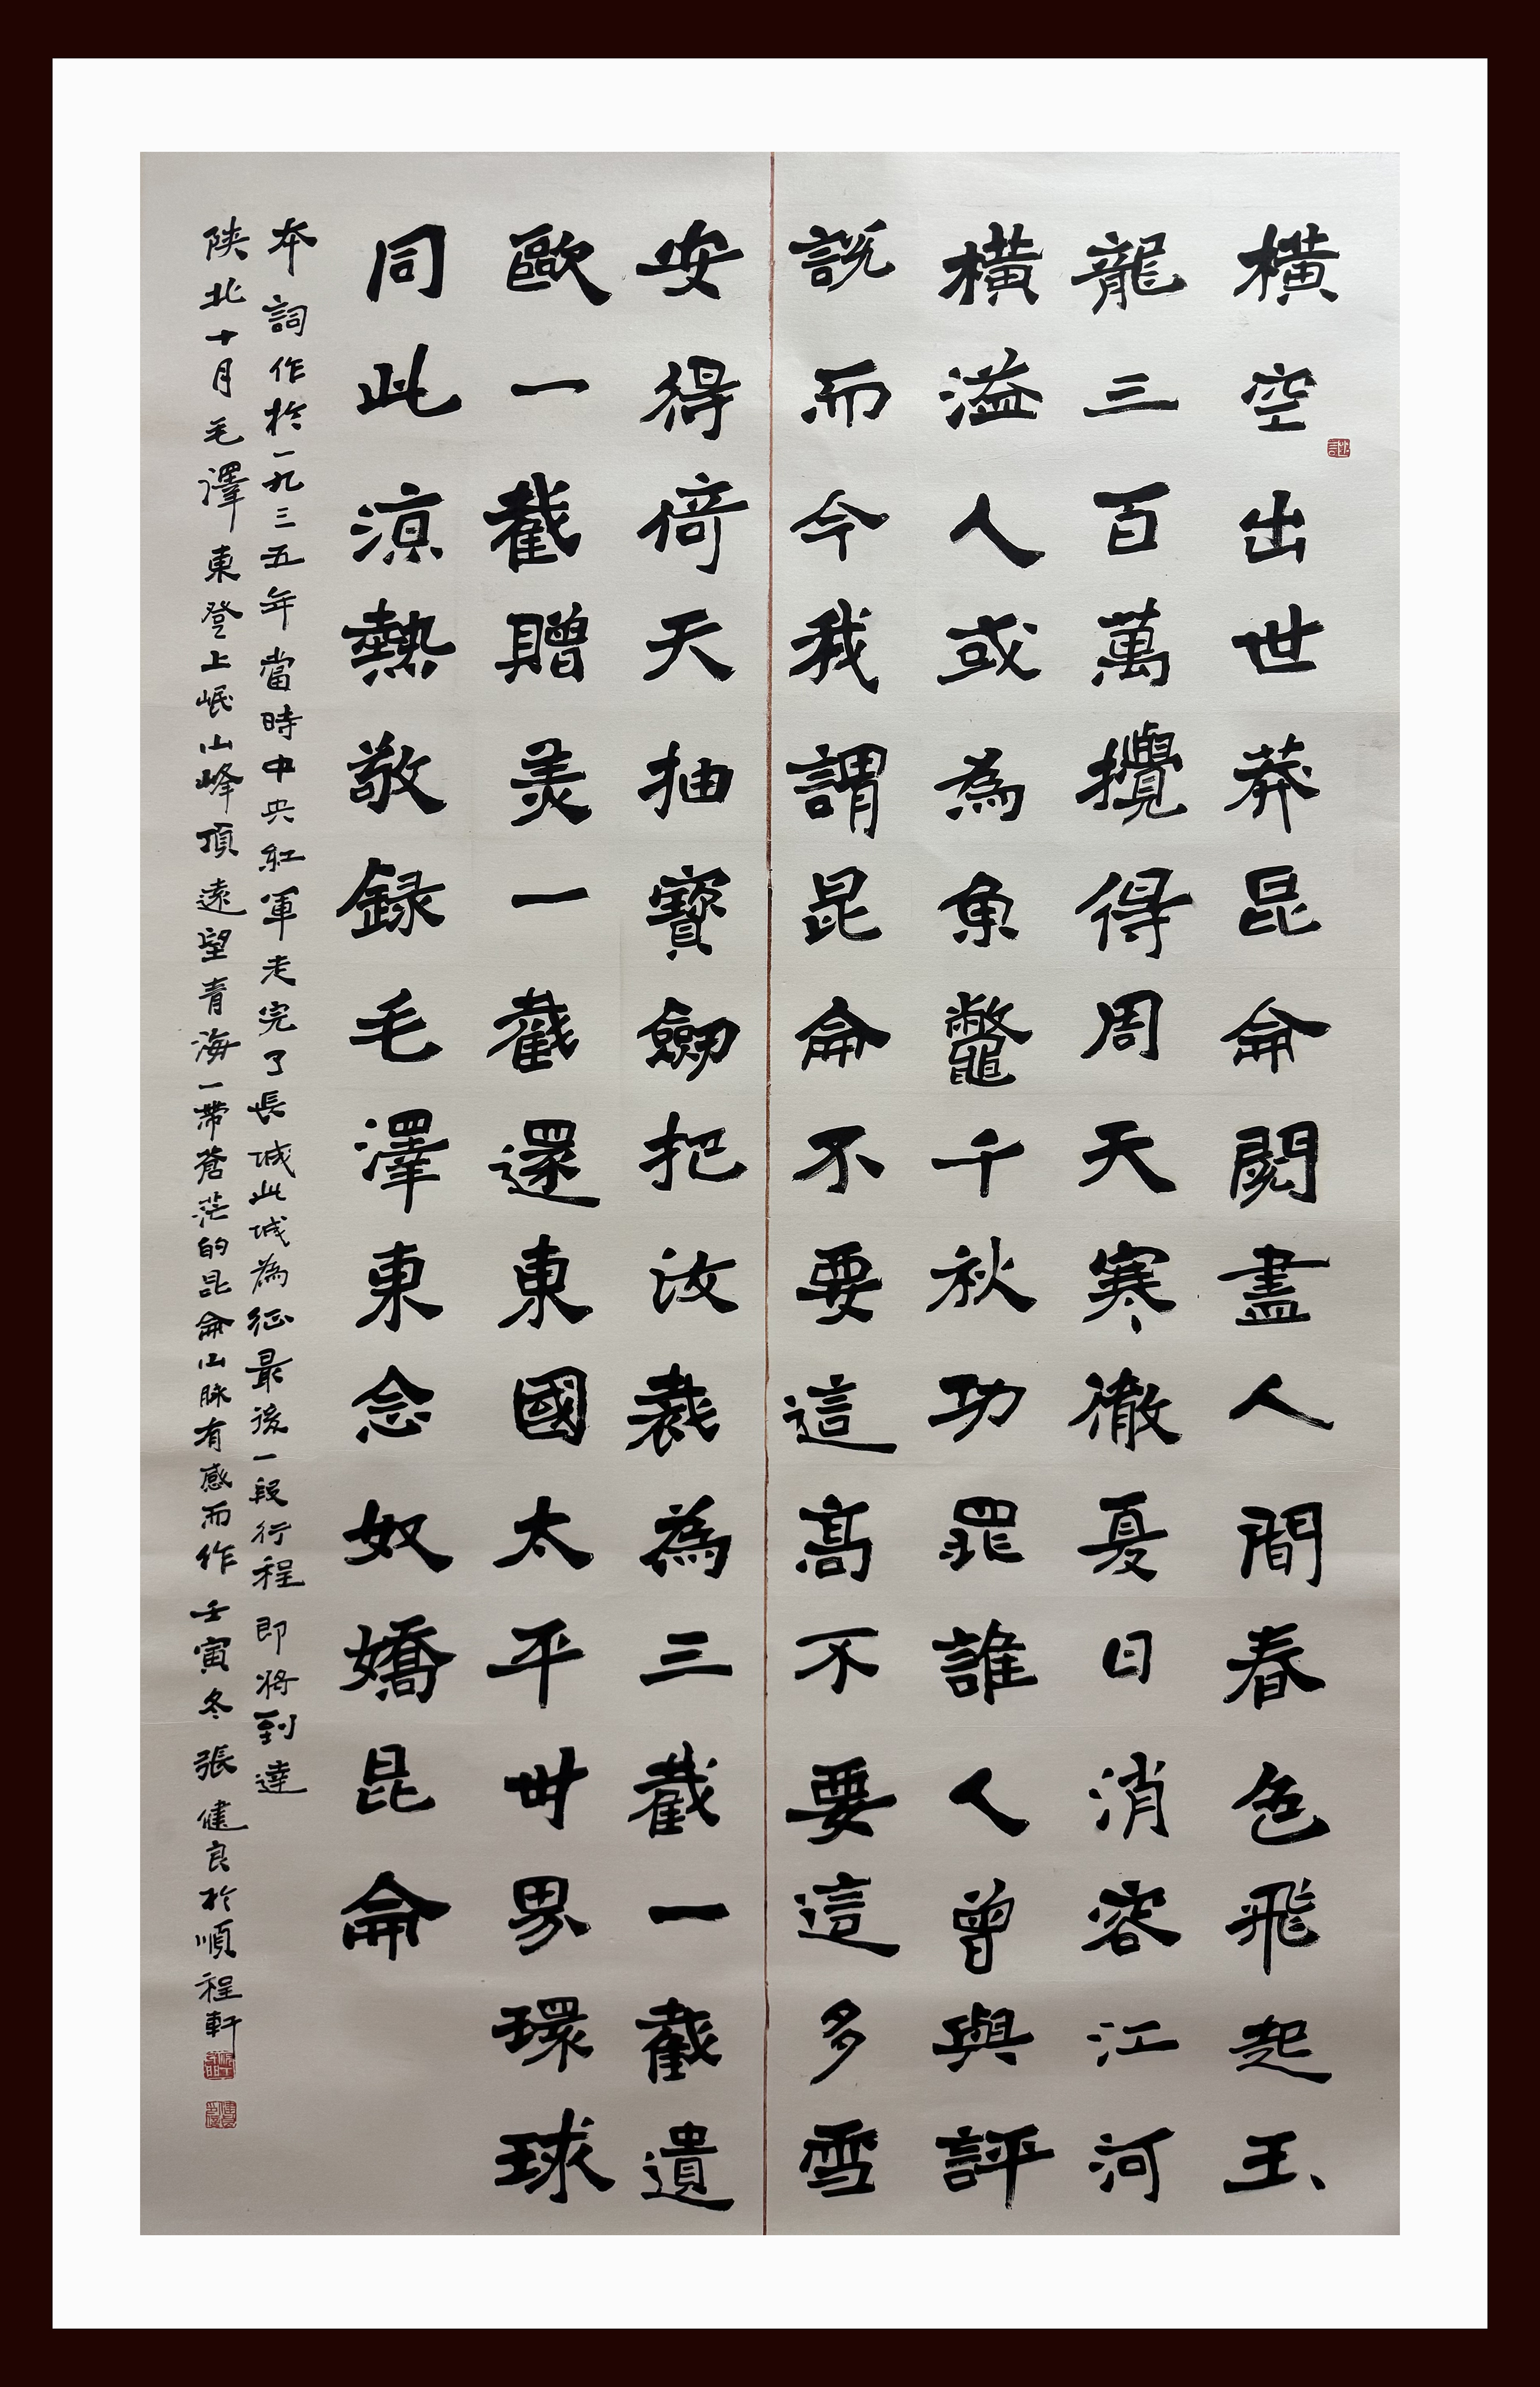 橫空出世莽昆侖閱盡人間春色飛起玉
龍三百萬攪得周天寒徹夏日消容江河
橫溢人或為魚鱉千秋功罪誰人曾與評
說而今我謂昆侖不要這高不要這多雪
安得倚天抽寶劍把汝裁為三截一截遺
歐一截贈美一截還東國太平世界環球
同此涼熱敬錄毛澤東念奴嬌昆侖
本詞作於一九三五年當時中央紅軍走完了長城此城為征最後一段行程即將到達
陝北十月毛澤東登上岷山峰頂遠望青海一帶蒼茫的昆侖山脉有感而作壬寅冬張健良於順程軒